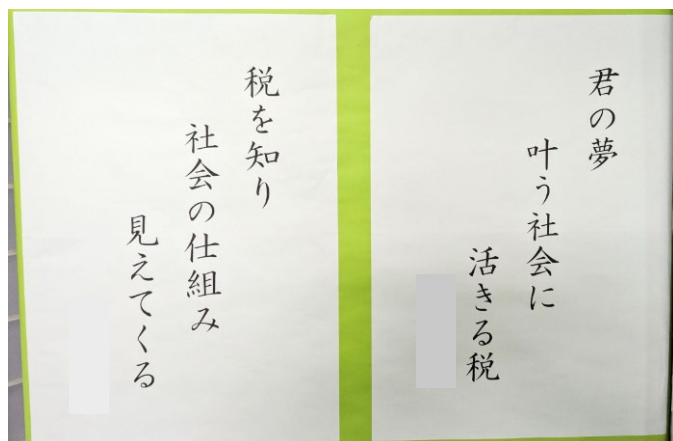 君の夢
叶う社会に
活きる税
税を知り
社会の仕組み
見えてくる